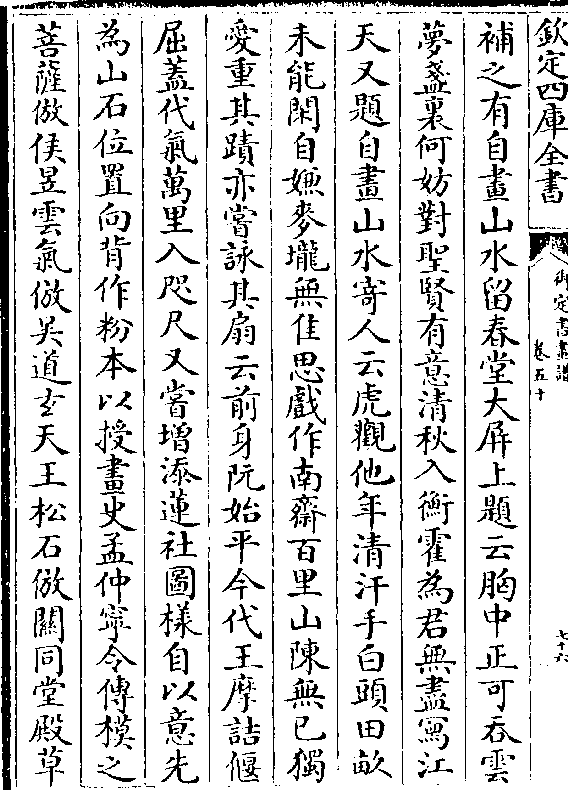 欽定四庫全書
御定書畫譜
卷五十
補之有自畫山水留春堂大屏上題云胸中正可吞雲
夢盞裏何妨對聖賢有意清秋入衡霍為君無盡寫江
天又題自畫山水寄人云虎觀他年清汗手白頭田畝
未能閑自嫌麥壠無佳思戲作南齋百里山陳無已獨
愛重其蹟亦嘗詠其扇云前身阮始平今代王摩詰偃
屈蓋代氣萬里入咫尺又嘗增添蓮社圖樣自以意先
為山石位置向背作粉本以授畫史孟仲寧令傳模之
菩薩倣侯昱雲氣倣吳道玄天王松石倣關同堂殿草